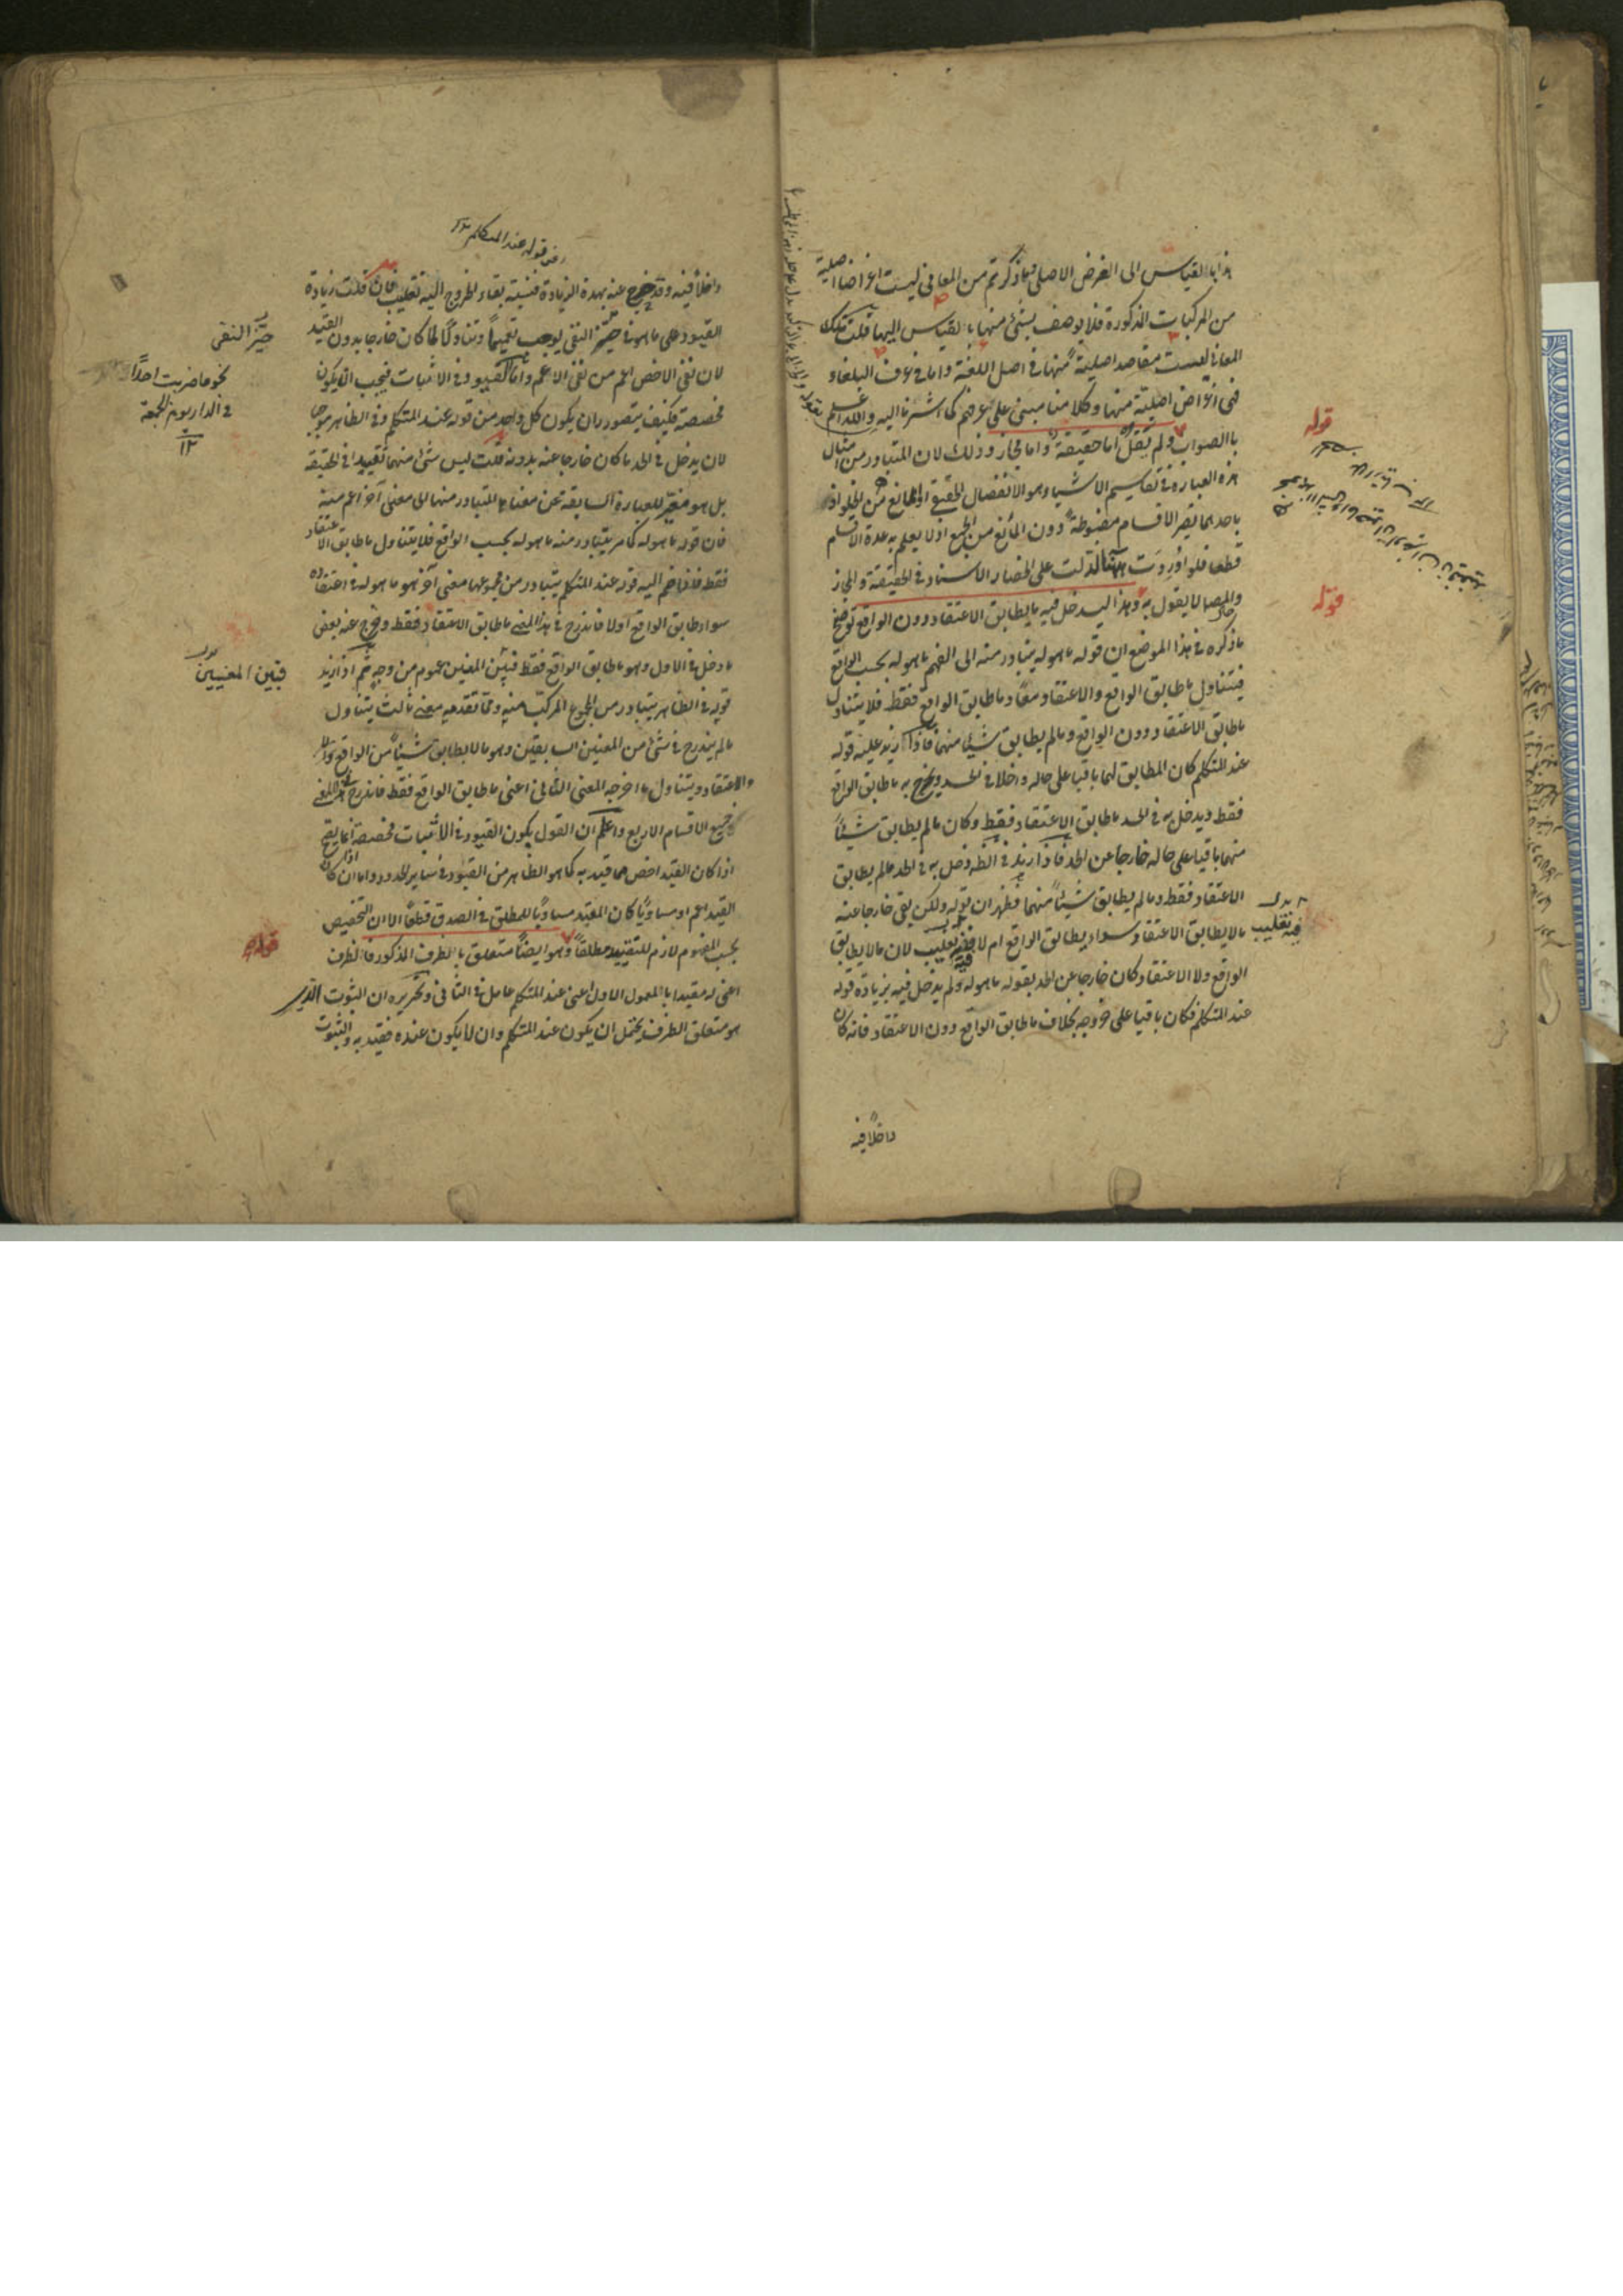 هذا بالقياس الى الغرض الاصلى فما ذكرتم من المعانى ليست اغراضا اصلية
من المركبات المذكورة فلا يوصف بشئ منها بالقياس اليها قلت تلك
المعانى ليست مقاصد اصلية منها فى اصل اللغة واما فى عرف البلغاء
فهى اغراض اصلية منها وكلامنا مبنى على عرفهم كما اشرنا اليه والله اعلم
بالصواب ولم يقل اما حقيقة واما مجاز وذلك لان المتبادر من امثال
هذه العبارة فى تقاسيم الاشياء هو الانفصال الحقيقى او المانع من الخلو اذ
باحدهما يصير الاقسام مضبوطة دون المانع من الجمع اذ لا يعلم به عدة الاقسام
قطعا فلو اوردت ههنا لدلت على انحصار الاسناد فى الحقيقة والمجاز
والمص لا يقول به وهذا ليدخل فيه ما يطابق الاعتقاد دون الواقع توضيح
ما ذكره فى هذا الموضع ان قوله ما هو له يتبادر منه الى الفهم ما هو له بحسب الواقع
فيتناول ما طابق الواقع والاعتقاد معا وما طابق الواقع فقط فلا يتناول
ما طابق الاعتقاد دون الواقع وما لم يطابق شيئا منهما فاذا زيد عليه قوله
عند المتكلم كان المطابق لهما باقيا على حاله داخلا فى الحد ويخرج به ما طابق الواقع
فقط ويدخل به فى الحد ما طابق الاعتقاد فقط وكان ما لم يطابق شيئا
منهما باقيا على حاله خارجا عن الحد فاذا زيد فى الظ دخل به فى الحد ما لم يطابق
الاعتقاد فقط وما لم يطابق شيئا منهما فظهر ان قوله ولكن بقى خارجا عنه
ما لا يطابق الاعتقاد سواء يطابق الواقع ام لا فيه تغليب لان ما لا يطابق
الواقع ولا الاعتقاد كان خارجا عن الحد بقوله ما هو له ولم يدخل فيه بزيادة قوله
عند المتكلم فكان باقيا على خروجه بخلاف ما طابق الواقع دون الاعتقاد فانه كان
داخلا فيه
قوله
قوله
فيه تغليب
داخلا فيه وقد خرج عنه بهذه الزيادة فنسبة بقاء الخروج اليه تغليب فان قلت زيادة
القيود على ما هو فى حيز النفى يوجب تعميما وتناولا لما كان خارجا بدون القيد
لان نفى الاخص اعم من نفى الاعم واما القيود فى الاثبات فيجب ان يكون
مخصصة فكيف يتصور ان يكون كل واحد من قوله عند المتكلم وفى الظاهر موجبا
لان يدخل فى الحد ما كان خارجا عنه بدونه قلت ليس شئ منهما تقييدا فى الحقيقة
بل هو مغير للعبارة السابقة عن معناها المتبادر منها الى معنى آخر اعم منه
فان قوله ما هو له كما مر يتبادر منه ما هو له بحسب الواقع فلا يتناول ما طابق الاعتقاد
فقط فاذا ضم اليه قوله عند المتكلم يتبادر من مجموعهما معنى آخر هو ما هو له فى اعتقاده
سواء طابق الواقع اولا فاندرج فى هذا المعنى ما طابق الاعتقاد فقط وخرج عنه بعض
ما دخل فى الاول وهو ما طابق الواقع فقط فبين المعنيين عموم من وجه ثم اذا زيد
قوله فى الظاهر يتبادر من المجموع المركب منه ومما تقدمه معنى ثالث يتناول
ما لم يندرج فى شئ من المعنيين السابقين وهو ما لا يطابق شيئا من الواقع
والاعتقاد ويتناول ما اخرجه المعنى الثانى اعنى ما طابق الواقع فقط فاندرج فى هذا المعنى
جميع الاقسام الاربع واعلم ان القول بكون القيود فى الاثبات مخصصة انما يصح
اذا كان القيد اخص مما قيد به كما هو الظاهر من القيود فى سائر الحدود واما اذا كان
القيد اعم او مساويا كان المقيد مساويا للمطلق فى الصدق قطعا الا ان التخصيص
بحسب المفهوم لازم للتقييد مطلقا وهو ايضا متعلق بالظرف المذكور فالظرف
اعنى له مقيدا بالمعمول الاول اعنى عند المتكلم عامل فى الثانى وتحريره ان الثبوت الذى
هو متعلق الظرف يحتمل ان يكون عند المتكلم وان لا يكون عنده فقيد به والثبوت
حيز النفى
نحو ما ضربت احدا
فى الدار يوم الجمعة
١٢
فبين المعنيين
قوله